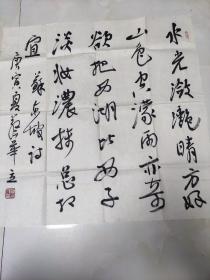 水光潋灔晴方好
山色空濛雨亦奇
欲把西湖比西子
淡妆浓抹总相
宜 苏东坡诗
庚寅夏 华立